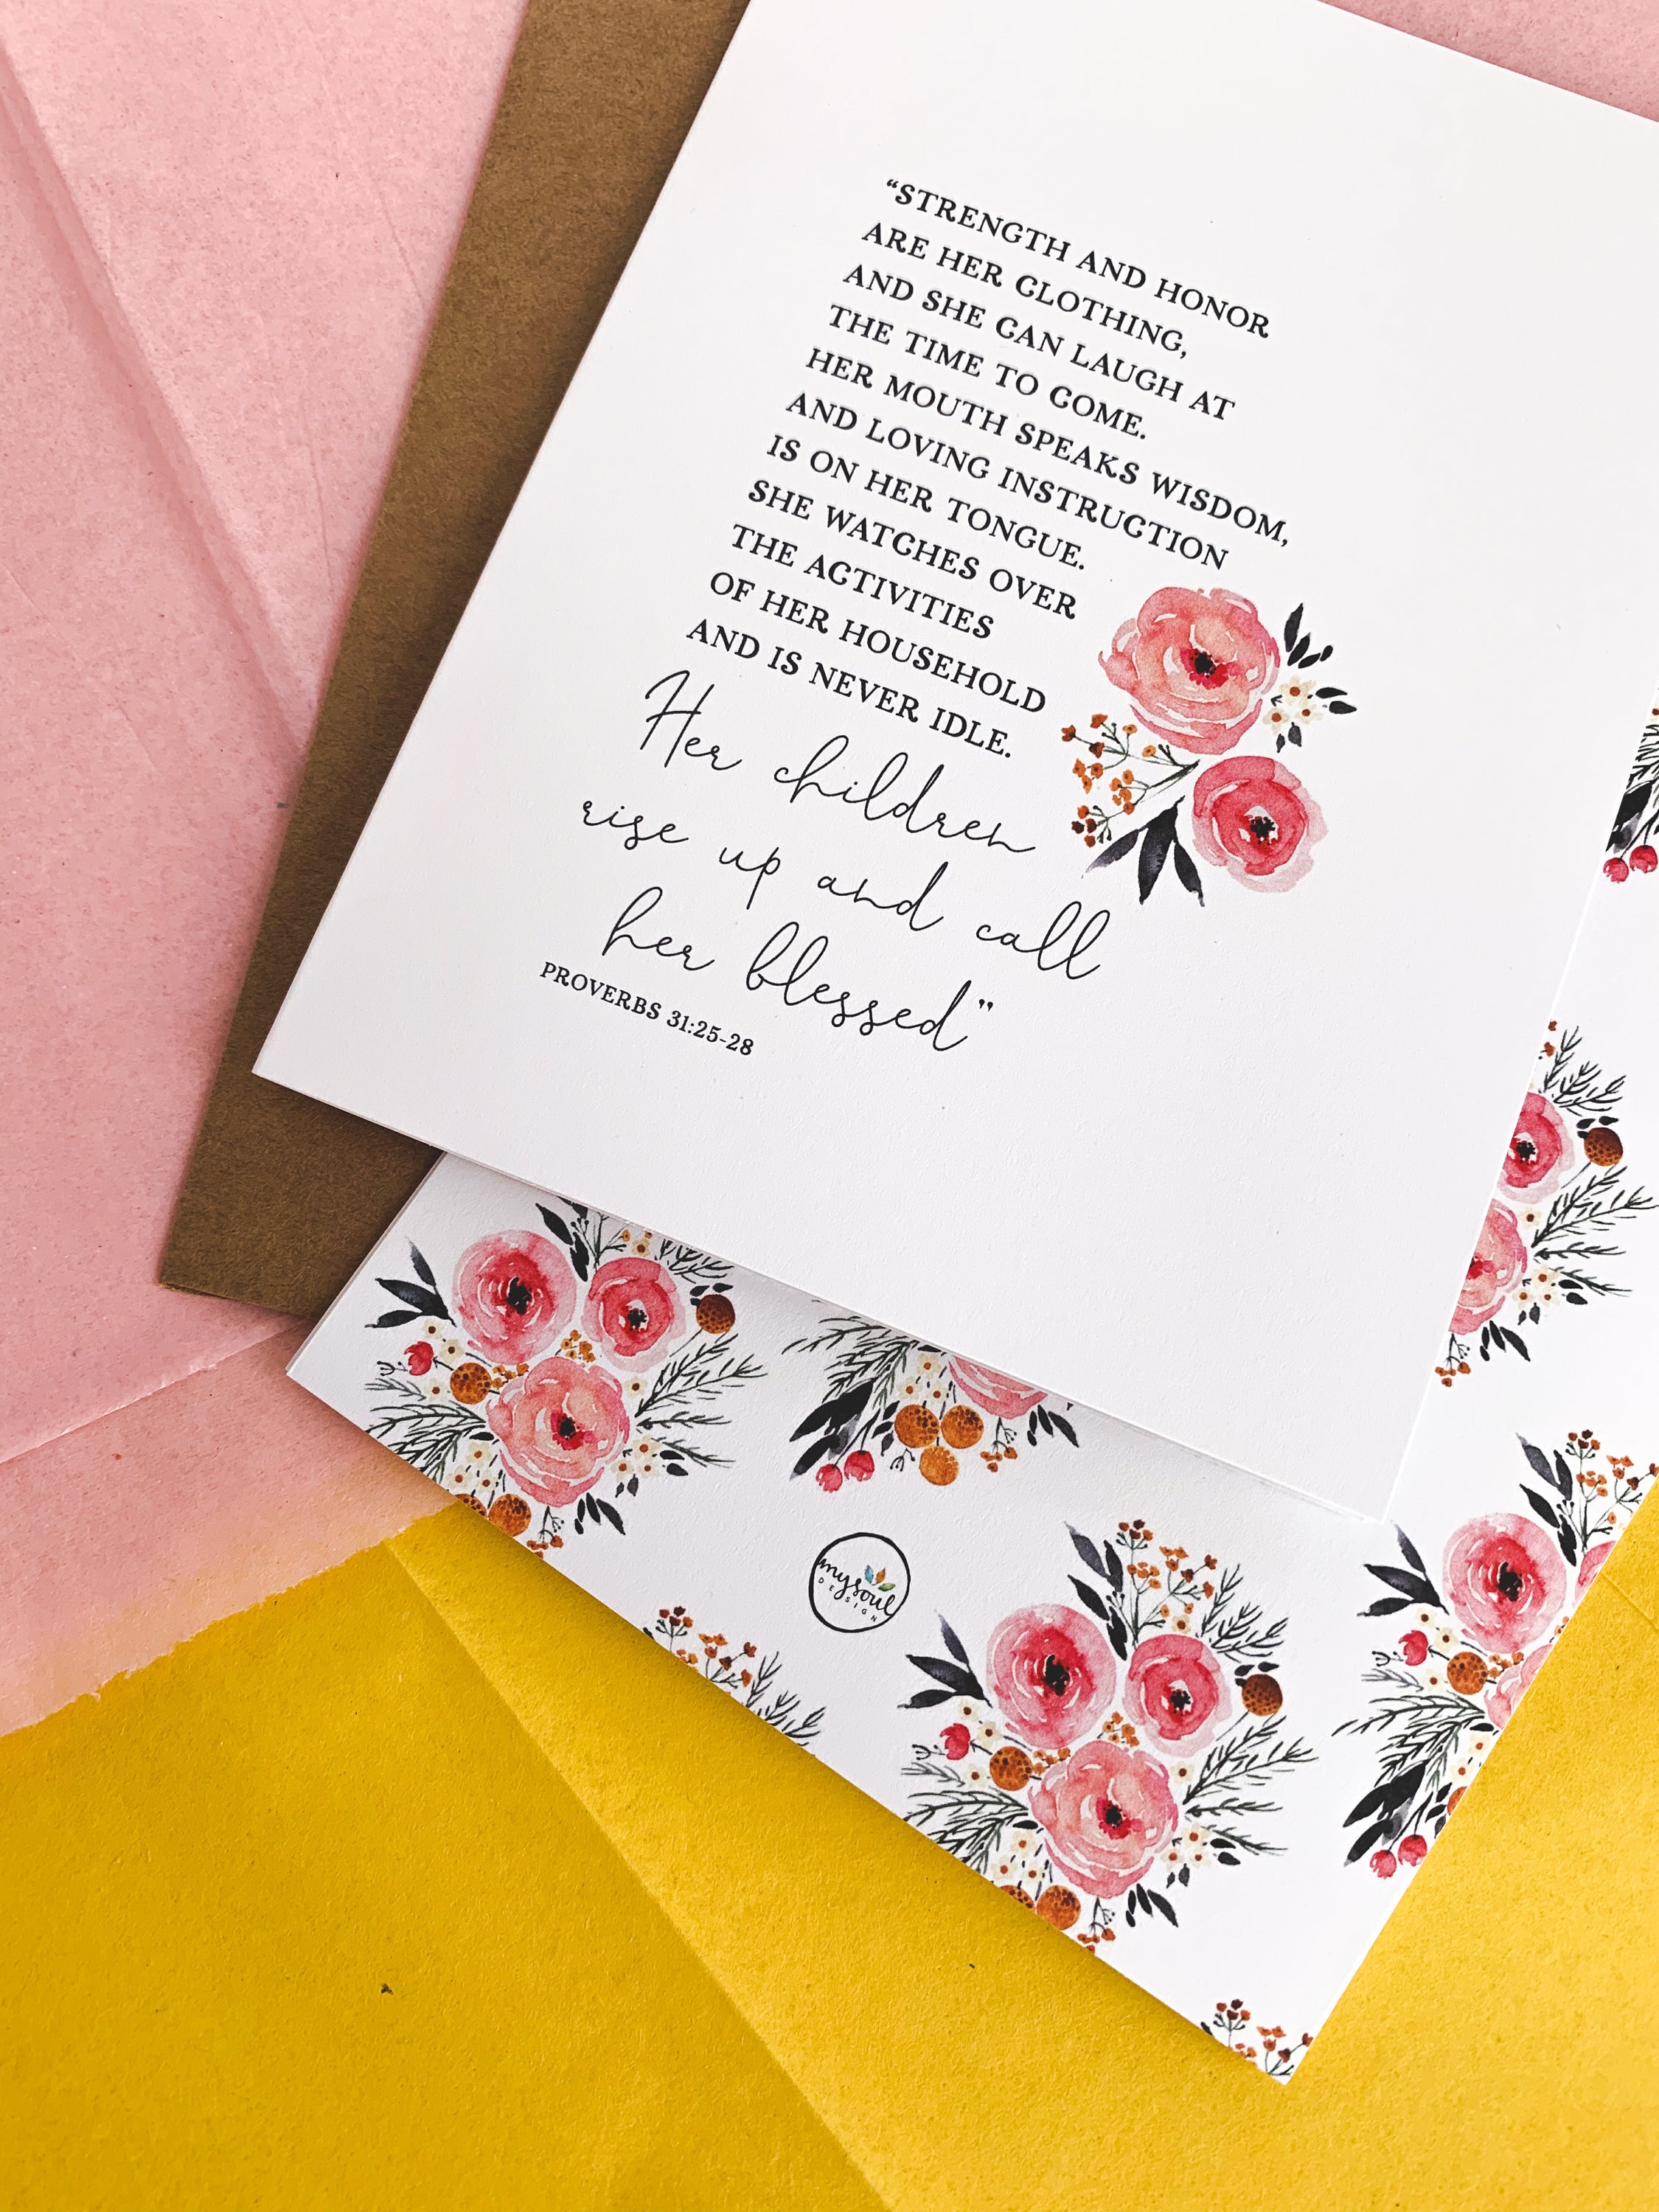 “STRENGTH AND HONOR
ARE HER CLOTHING,
AND SHE CAN LAUGH AT
THE TIME TO COME.
HER MOUTH SPEAKS WISDOM,
AND LOVING INSTRUCTION
IS ON HER TONGUE.
SHE WATCHES OVER
THE ACTIVITIES
OF HER HOUSEHOLD
AND IS NEVER IDLE.
Her children
rise up and call
her blessed”
PROVERBS 31:25-28
mysoul
DESIGN